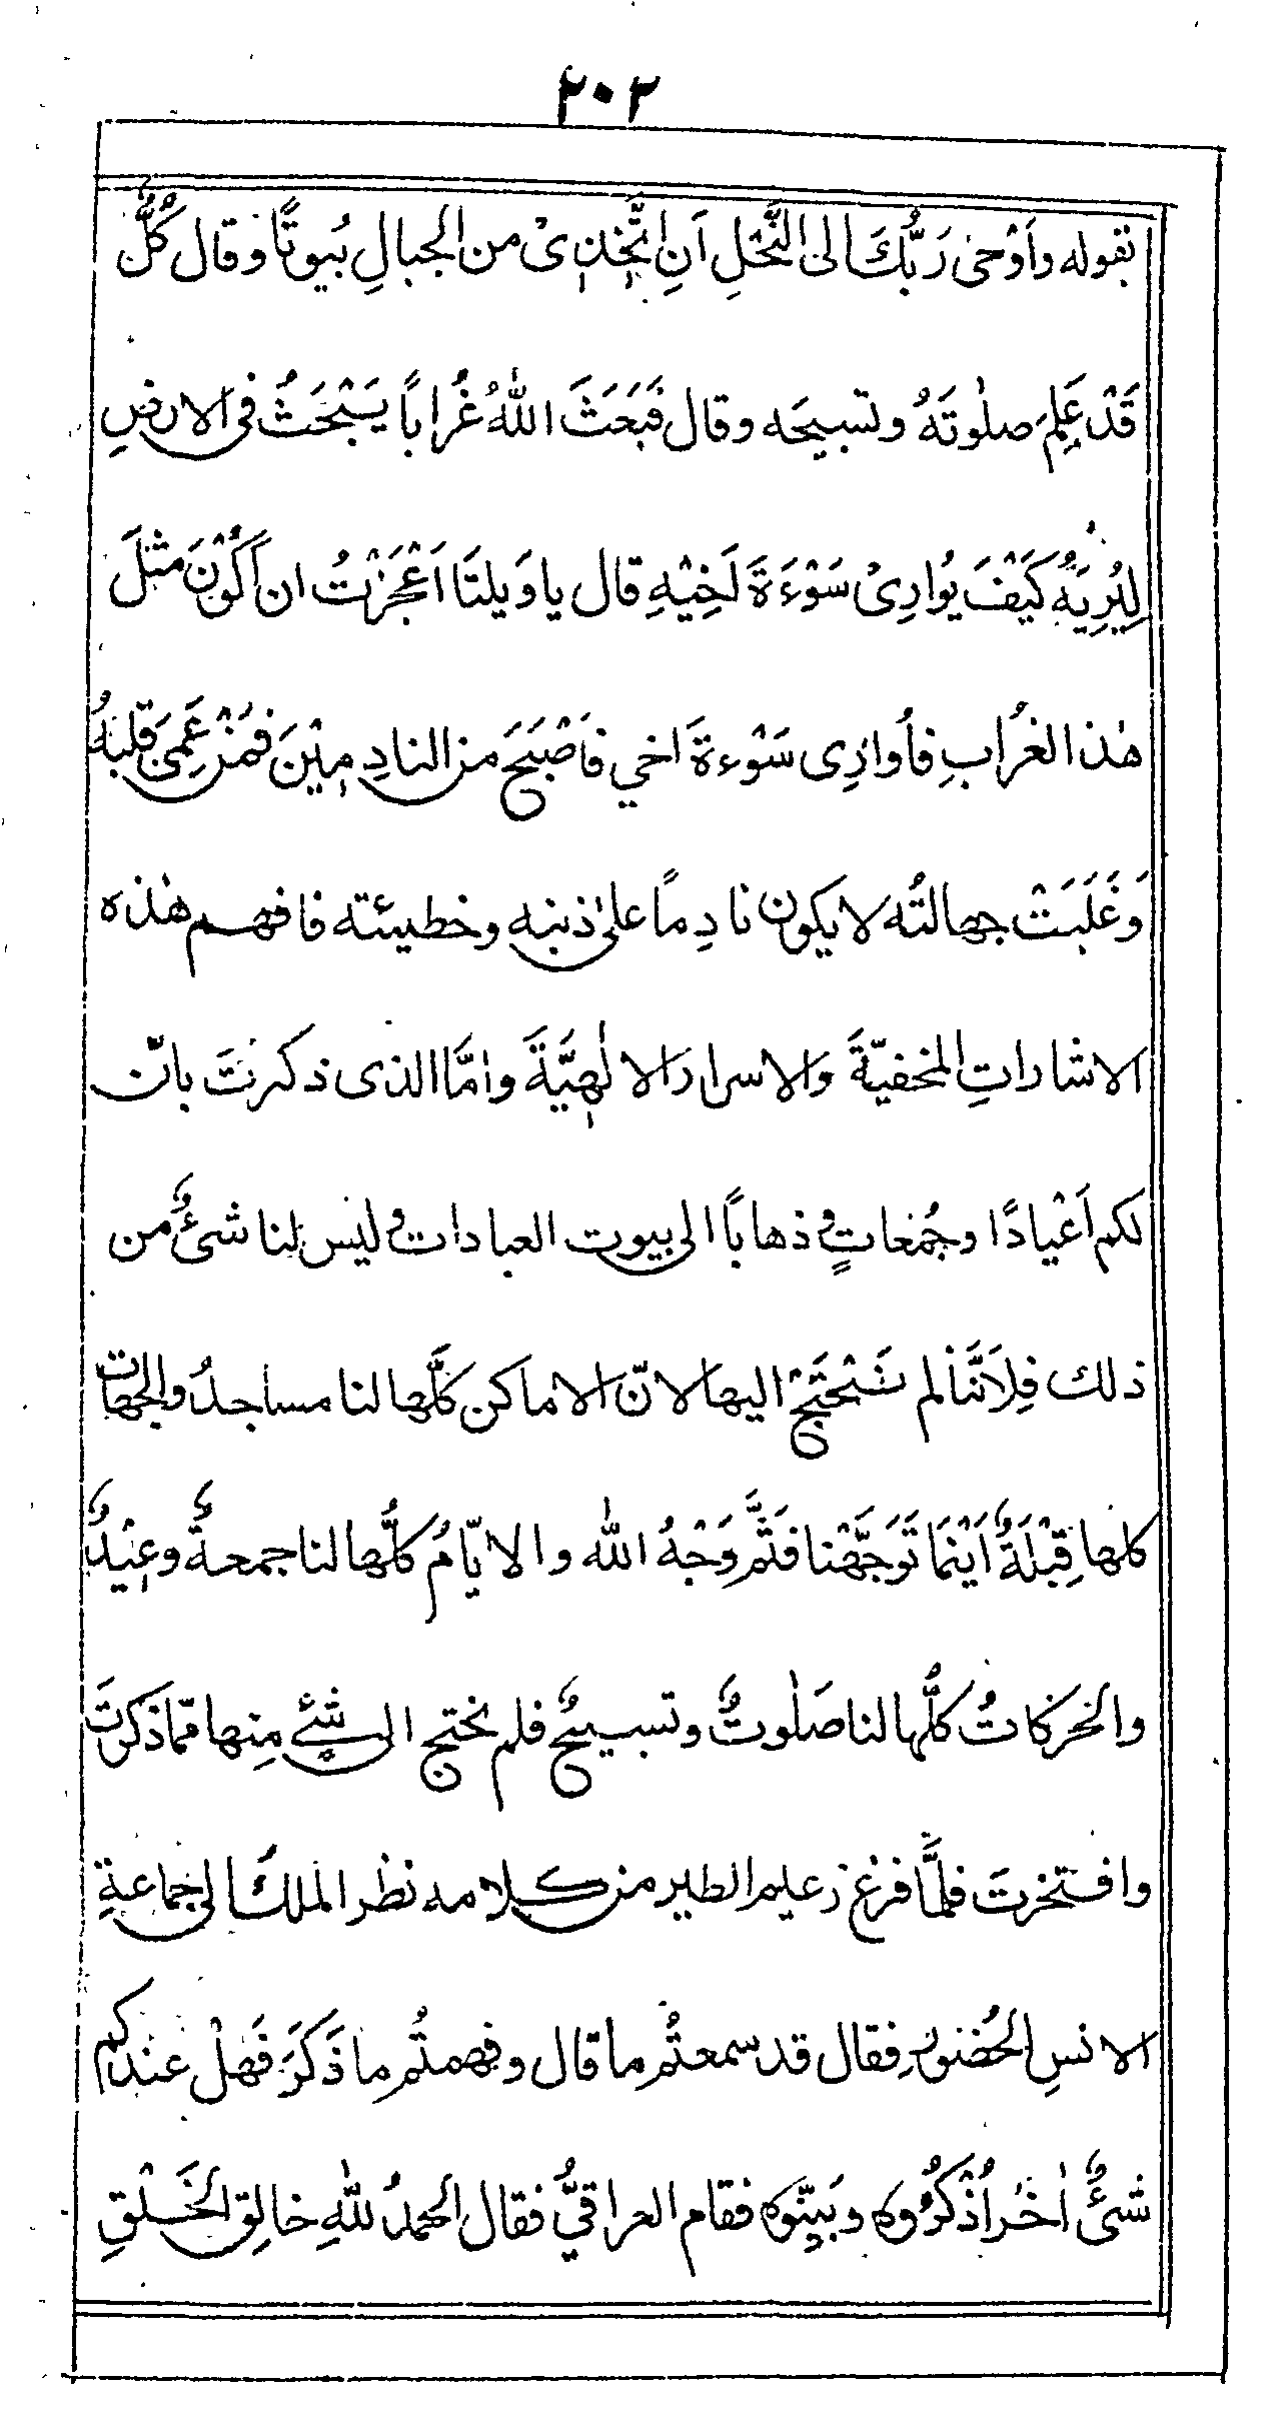 ٢٠٢
بقوله وَاَوْحٰى رَبُّكَ الى النَّحْلِ اَنِ اتَّخِذِىْ من الجبالِ بُيوتًا وقال كُلٌّ
قَدْ عَلِمَ صلٰوتَهُ وتسبيحَه وقال فَبَعَثَ اللّٰهُ غُرابًا يَبْحَثُ فى الارضِ
لِيُرِيَهُ كَيْفَ يُوارِىْ سَوْءَةَ اَخِيْهِ قال ياوَيلتَا اَعْجَزْتُ ان اَكُوْنَ مثلَ
هٰذا الغُرابِ فاُوارِى سَوْءةَ اخي فاَصْبَحَ من النادِمِيْنَ فمَنْ عَمِىَ قلبهُ
وَغَلَبَتْ جهالتُه لا يكون نادِمًا علىٰ ذنبه وخطيئته فافهم هٰذه
الاشاراتِ المخفيّةَ والاسرارَ الالٰهِيَّةَ وامَّا الذى ذكرتَ بانّ
لكم اَعْيادًا وجُمُعاتٍ و ذهابًا الى بيوت العبادات و ليس لنا شئٌ من
ذلك فلِاَنَّنا لم نَحْتَجْ اليها لانّ الاماكن كلَّها لنا مساجدُ والجهات
كلها قِبْلَةٌ اَيْنَمَا تَوَجَّهْنا فَثَمَّ وَجْهُ اللّٰه والايّامُ كلُّها لنا جمعةٌ وعِيْدٌ
والحركاتُ كلُّها لنا صَلٰوتٌ وتسبيحٌ فلم نحتج الى شئٍ مِنها ممّا ذَكرتَ
وافتخرتَ فلمَّا فرغ زعيم الطير من كلامه نظر الملكُ الى جماعةِ
الانسِ الحُضورِ فقال قد سمعتُم ما قال وفهمتُم ما ذَكَرَ فَهَلْ عندكم
شئٌ اٰخَرُ اذْكُرُوه وبَيِّنوه فقام العراقيُّ فقال الحمدُ للّٰهِ خالِقِ الخَلْقِ